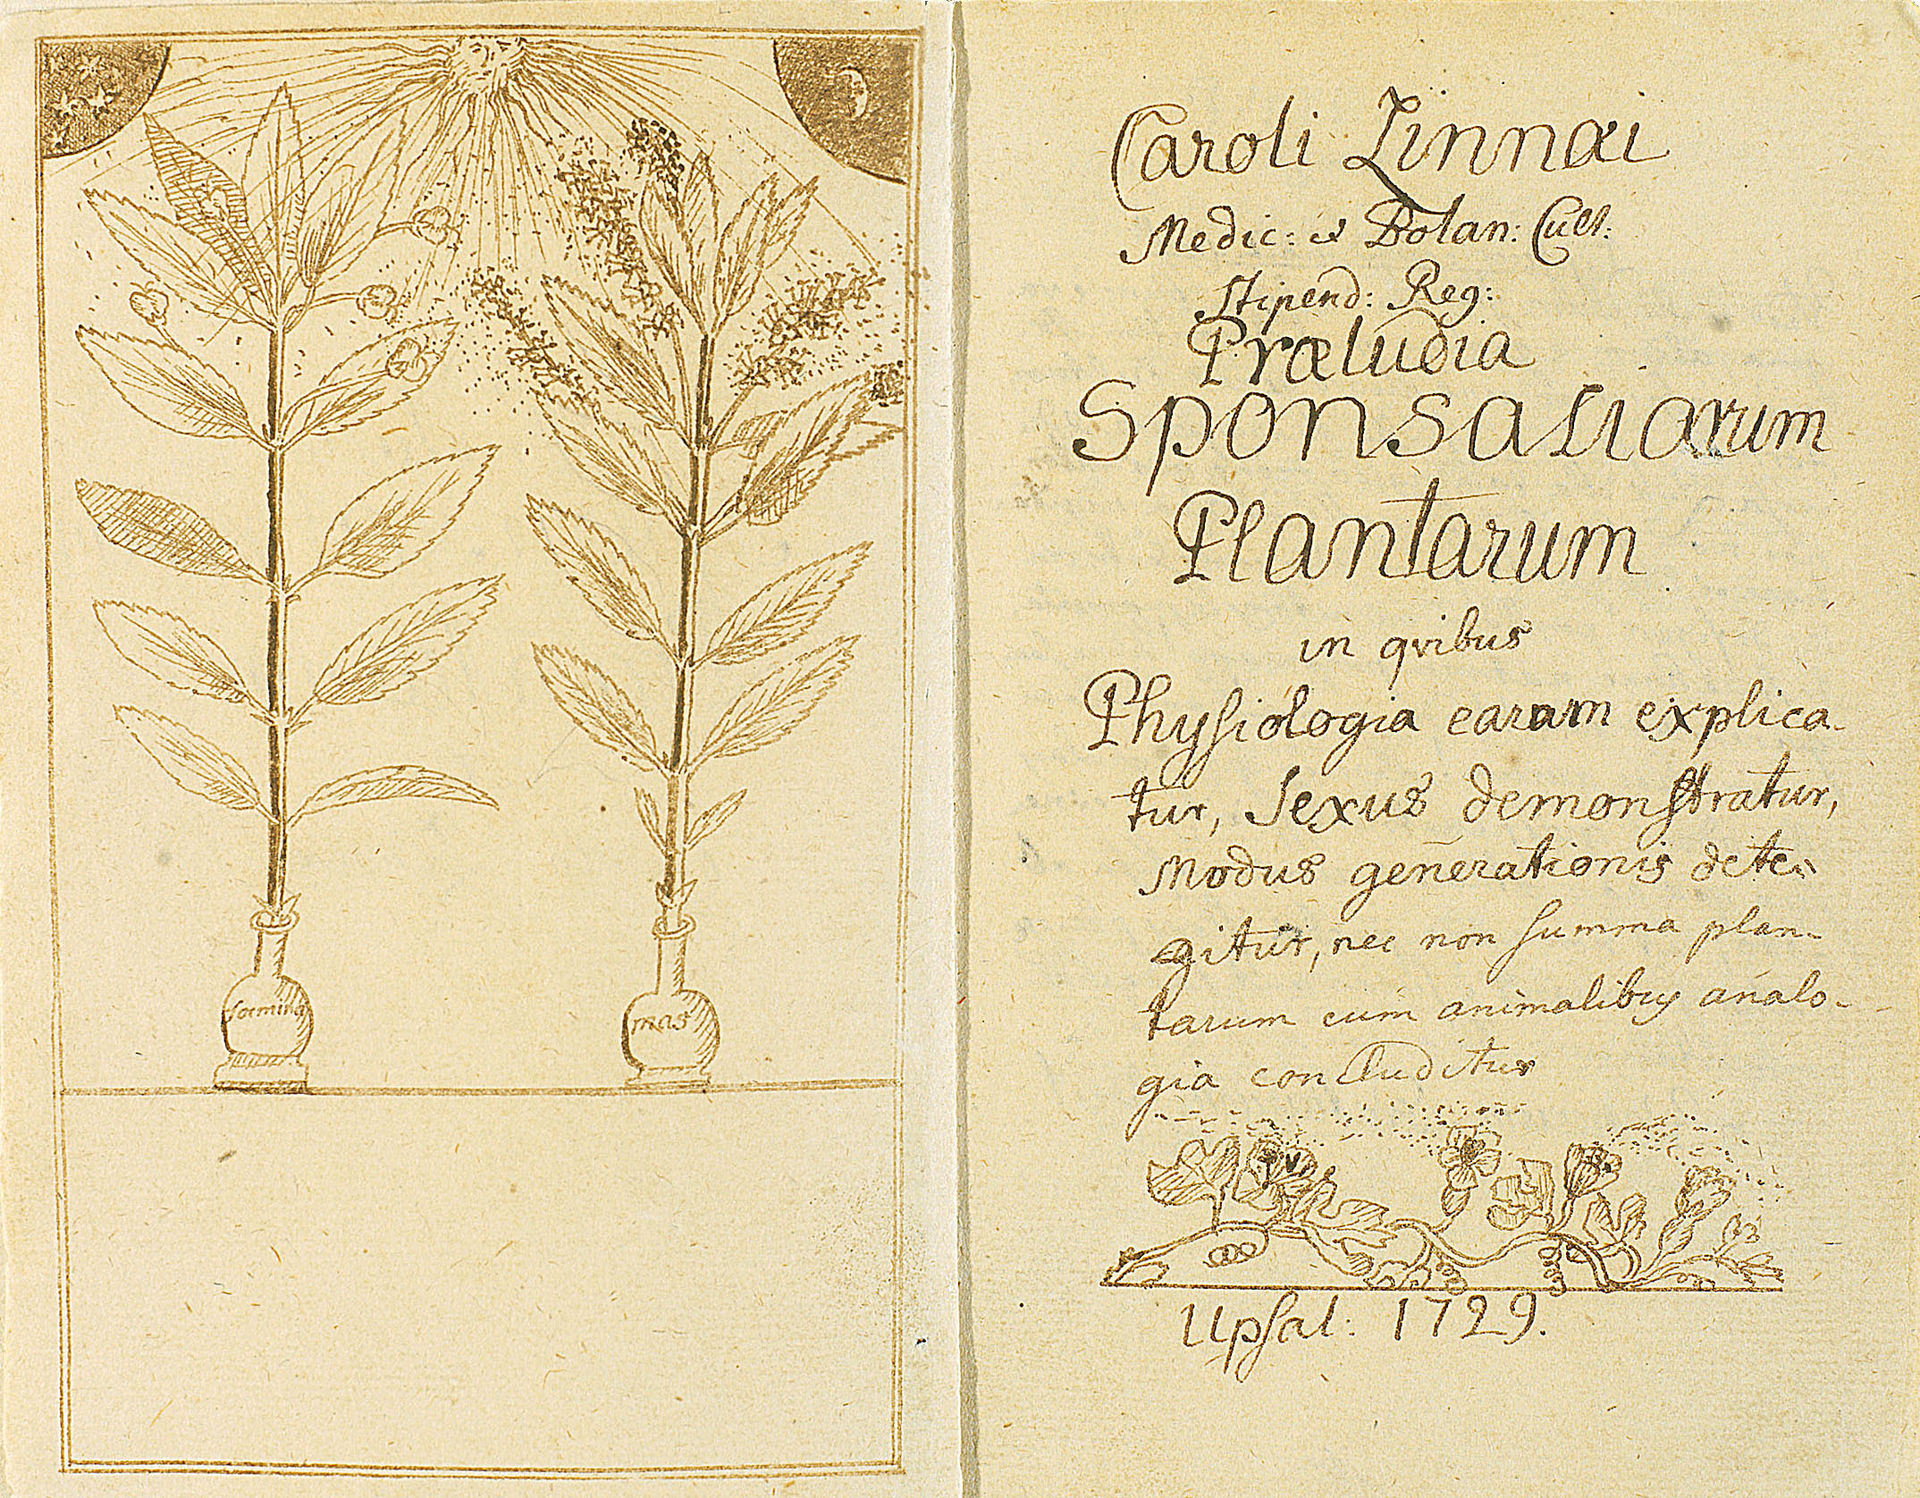 fœmina
mas
Caroli Linnæi
Medic: et Botan: Cult:
Stipend: Reg:
Præludia
Sponsaliorum
Plantarum
in qvibus
Physiologia earum explica-
tur, Sexus demonstratur,
Modus generationis dete-
gitur, nec non summa plan-
tarum cum animalibus analo-
gia concluditur
Upsal: 1729.